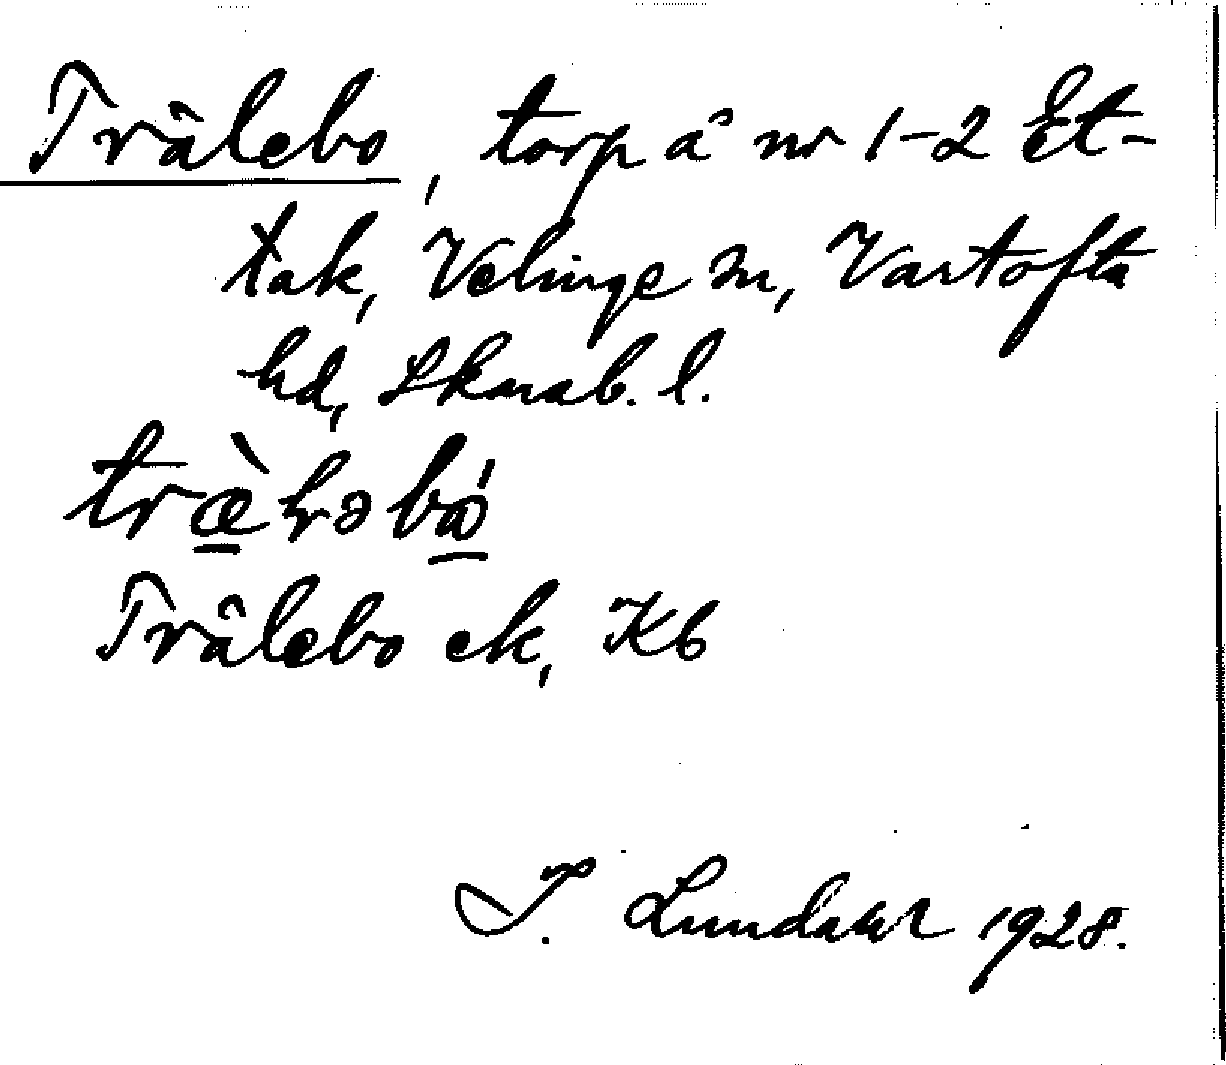 Trålebo, torp å nr 1-2 Et-
tak, Velinge sn, Vartofta
hd, Skarab. l.
Trålebo ek, Kb
I. Lundahl 1928.